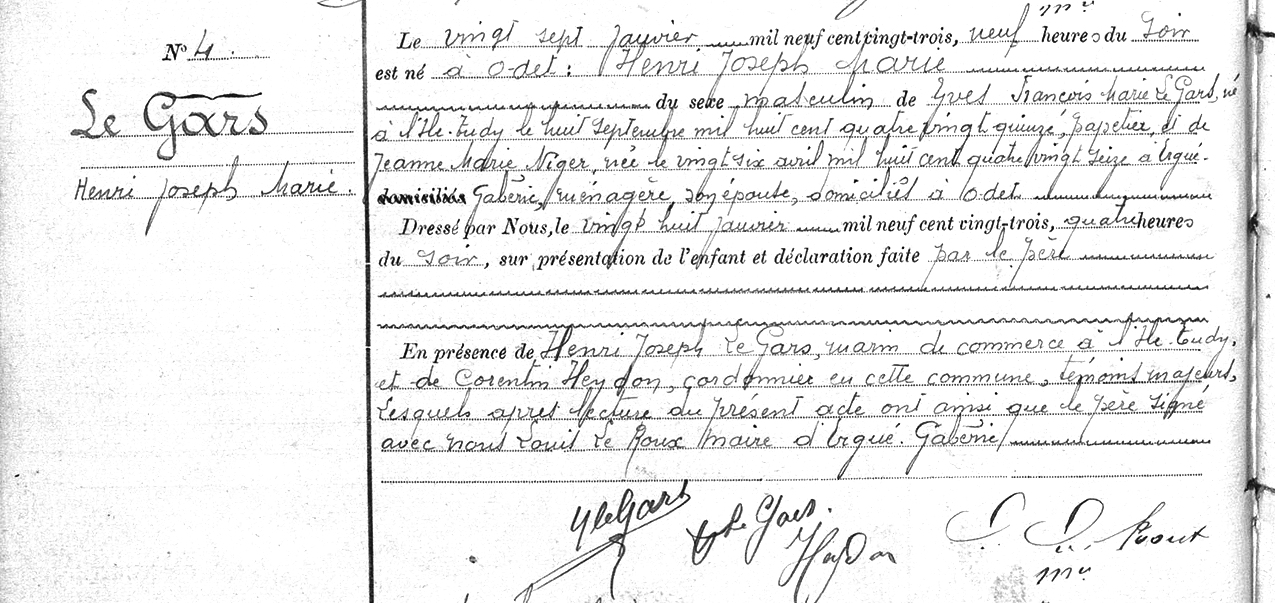 N° 4.
Le Gars
Henri Joseph Marie.
Le vingt sept janvier mil neuf cent vingt-trois, neuf heures du soir
est né à Odet : Henri Joseph Marie
du sexe masculin de Yves François Marie Le Gars, né
à l'Ile-Tudy le huit septembre mil huit cent quatre vingt quinze, papetier, et de
Jeanne Marie Niger, née le vingt six avril mil huit cent quatre vingt seize à Ergué-
domiciliés Gabéric, ménagère, son épouse, domiciliés à Odet
Dressé par Nous, le vingt huit janvier mil neuf cent vingt-trois, quatre heures
du soir, sur présentation de l'enfant et déclaration faite par le père
En présence de Henri Joseph Le Gars, marin de commerce à l'Ile-Tudy,
et de Corentin Heydon, cordonnier en cette commune, témoins majeurs,
Lesquels après lecture du présent acte ont ainsi que le père signé
avec nous Louis Le Roux Maire d'Ergué-Gabéric
Y le Gars
Le Gars.
Heydon
L. Le Roux